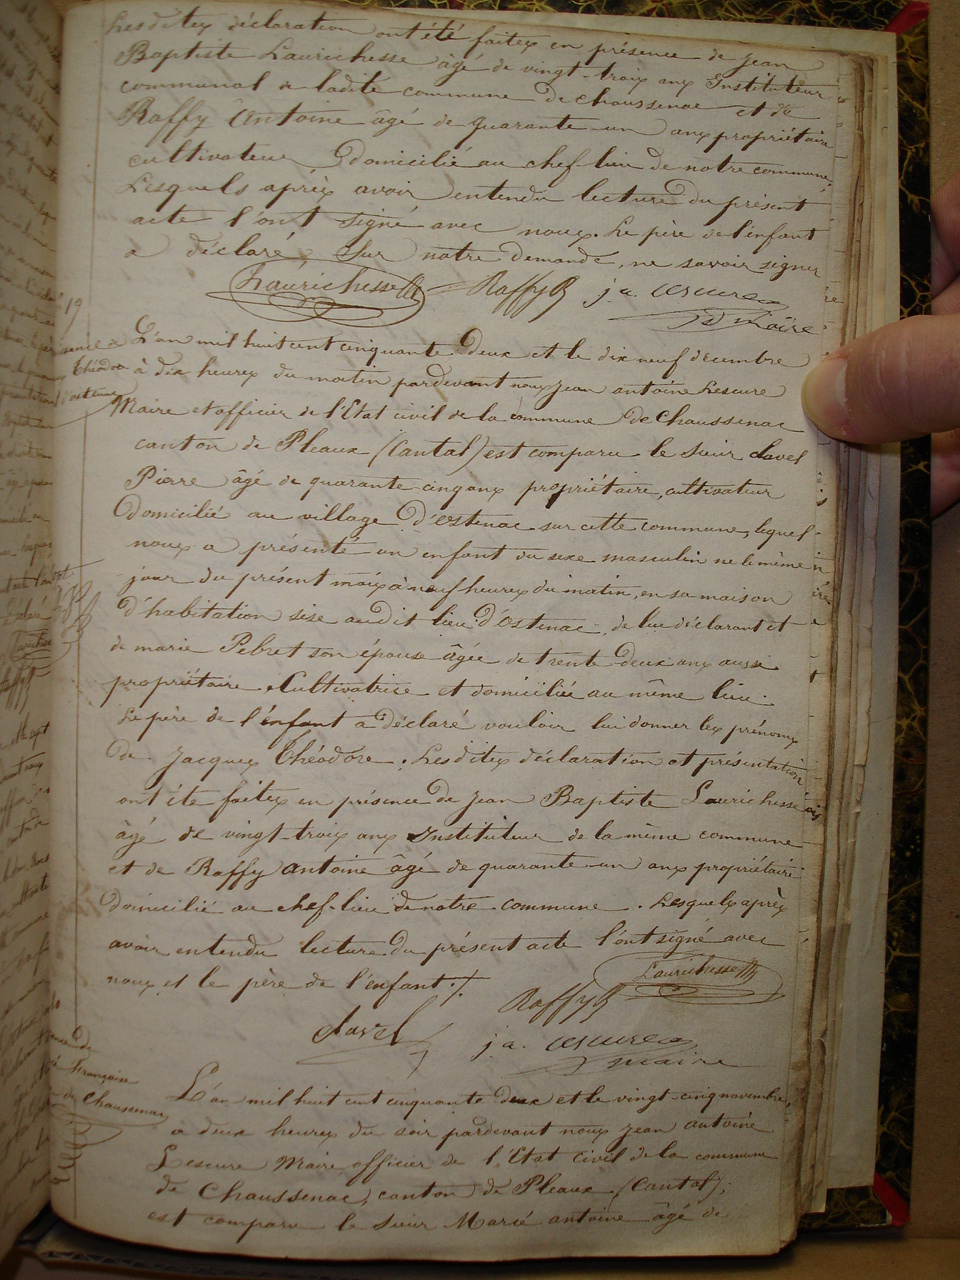 Lesdites déclaration ont été faites en présence de Jean
Baptiste Laurichesse âgé de vingt-trois ans Instituteur
communal de ladite commune de chaussenac et de
Raffy Antoine âgé de quarante-un ans propriétaire
cultivateur domicilié au chef-lieu de notre commune,
Lesquels après avoir entendu lecture du présent
acte l'ont signé avec nous. Le père de l'enfant
a déclaré, sur notre demande, ne savoir signer
Laurichesse Raffy j. a. Lescure
maire
19
Théodore
d'ostenac
L'an mil huit cent cinquante deux et le dix neuf décembre
à dix heures du matin pardevant nous Jean antoine Lescure
Maire et officier de l'Etat civil de la commune de chaussenac
canton de Pleaux (Cantal) est comparu le sieur Clavel
Pierre âgé de quarante cinq ans propriétaire, cultivateur
domicilié au village d'ostenac sur cette commune, lequel
nous a présenté un enfant du sexe masculin né le même
jour du présent mois à neuf heures du matin, en sa maison
d'habitation sise audit lieu d'Ostenac, de lui déclarant et
de marie Pébret son épouse âgée de trente-deux ans aussi
propriétaire, Cultivatrice et domiciliée au même lieu.
Le père de l'enfant a déclaré vouloir lui donner les prénoms
de Jacques Théodore. Lesdites déclaration et présentation
ont été faites en présence de Jean Baptiste Laurichesse
âgé de vingt-trois ans Instituteur de la même commune
et de Raffy antoine âgé de quarante-un ans propriétaire
domicilié au chef-lieu de notre commune. Lesquels après
avoir entendu lecture du présent acte l'ont signé avec
nous et le père de l'enfant ./.
Laurichesse
Raffy
Clavel
j. a. Lescure
maire
Françoise
de Chaussenac
L'an mil huit cent cinquante deux et le vingt-cinq novembre,
à deux heures du soir pardevant nous Jean antoine
Lescure Maire officier de l'Etat civil de la commune
de Chaussenac, canton de Pleaux, (Cantal),
est comparu le sieur Marcé antoine âgé de